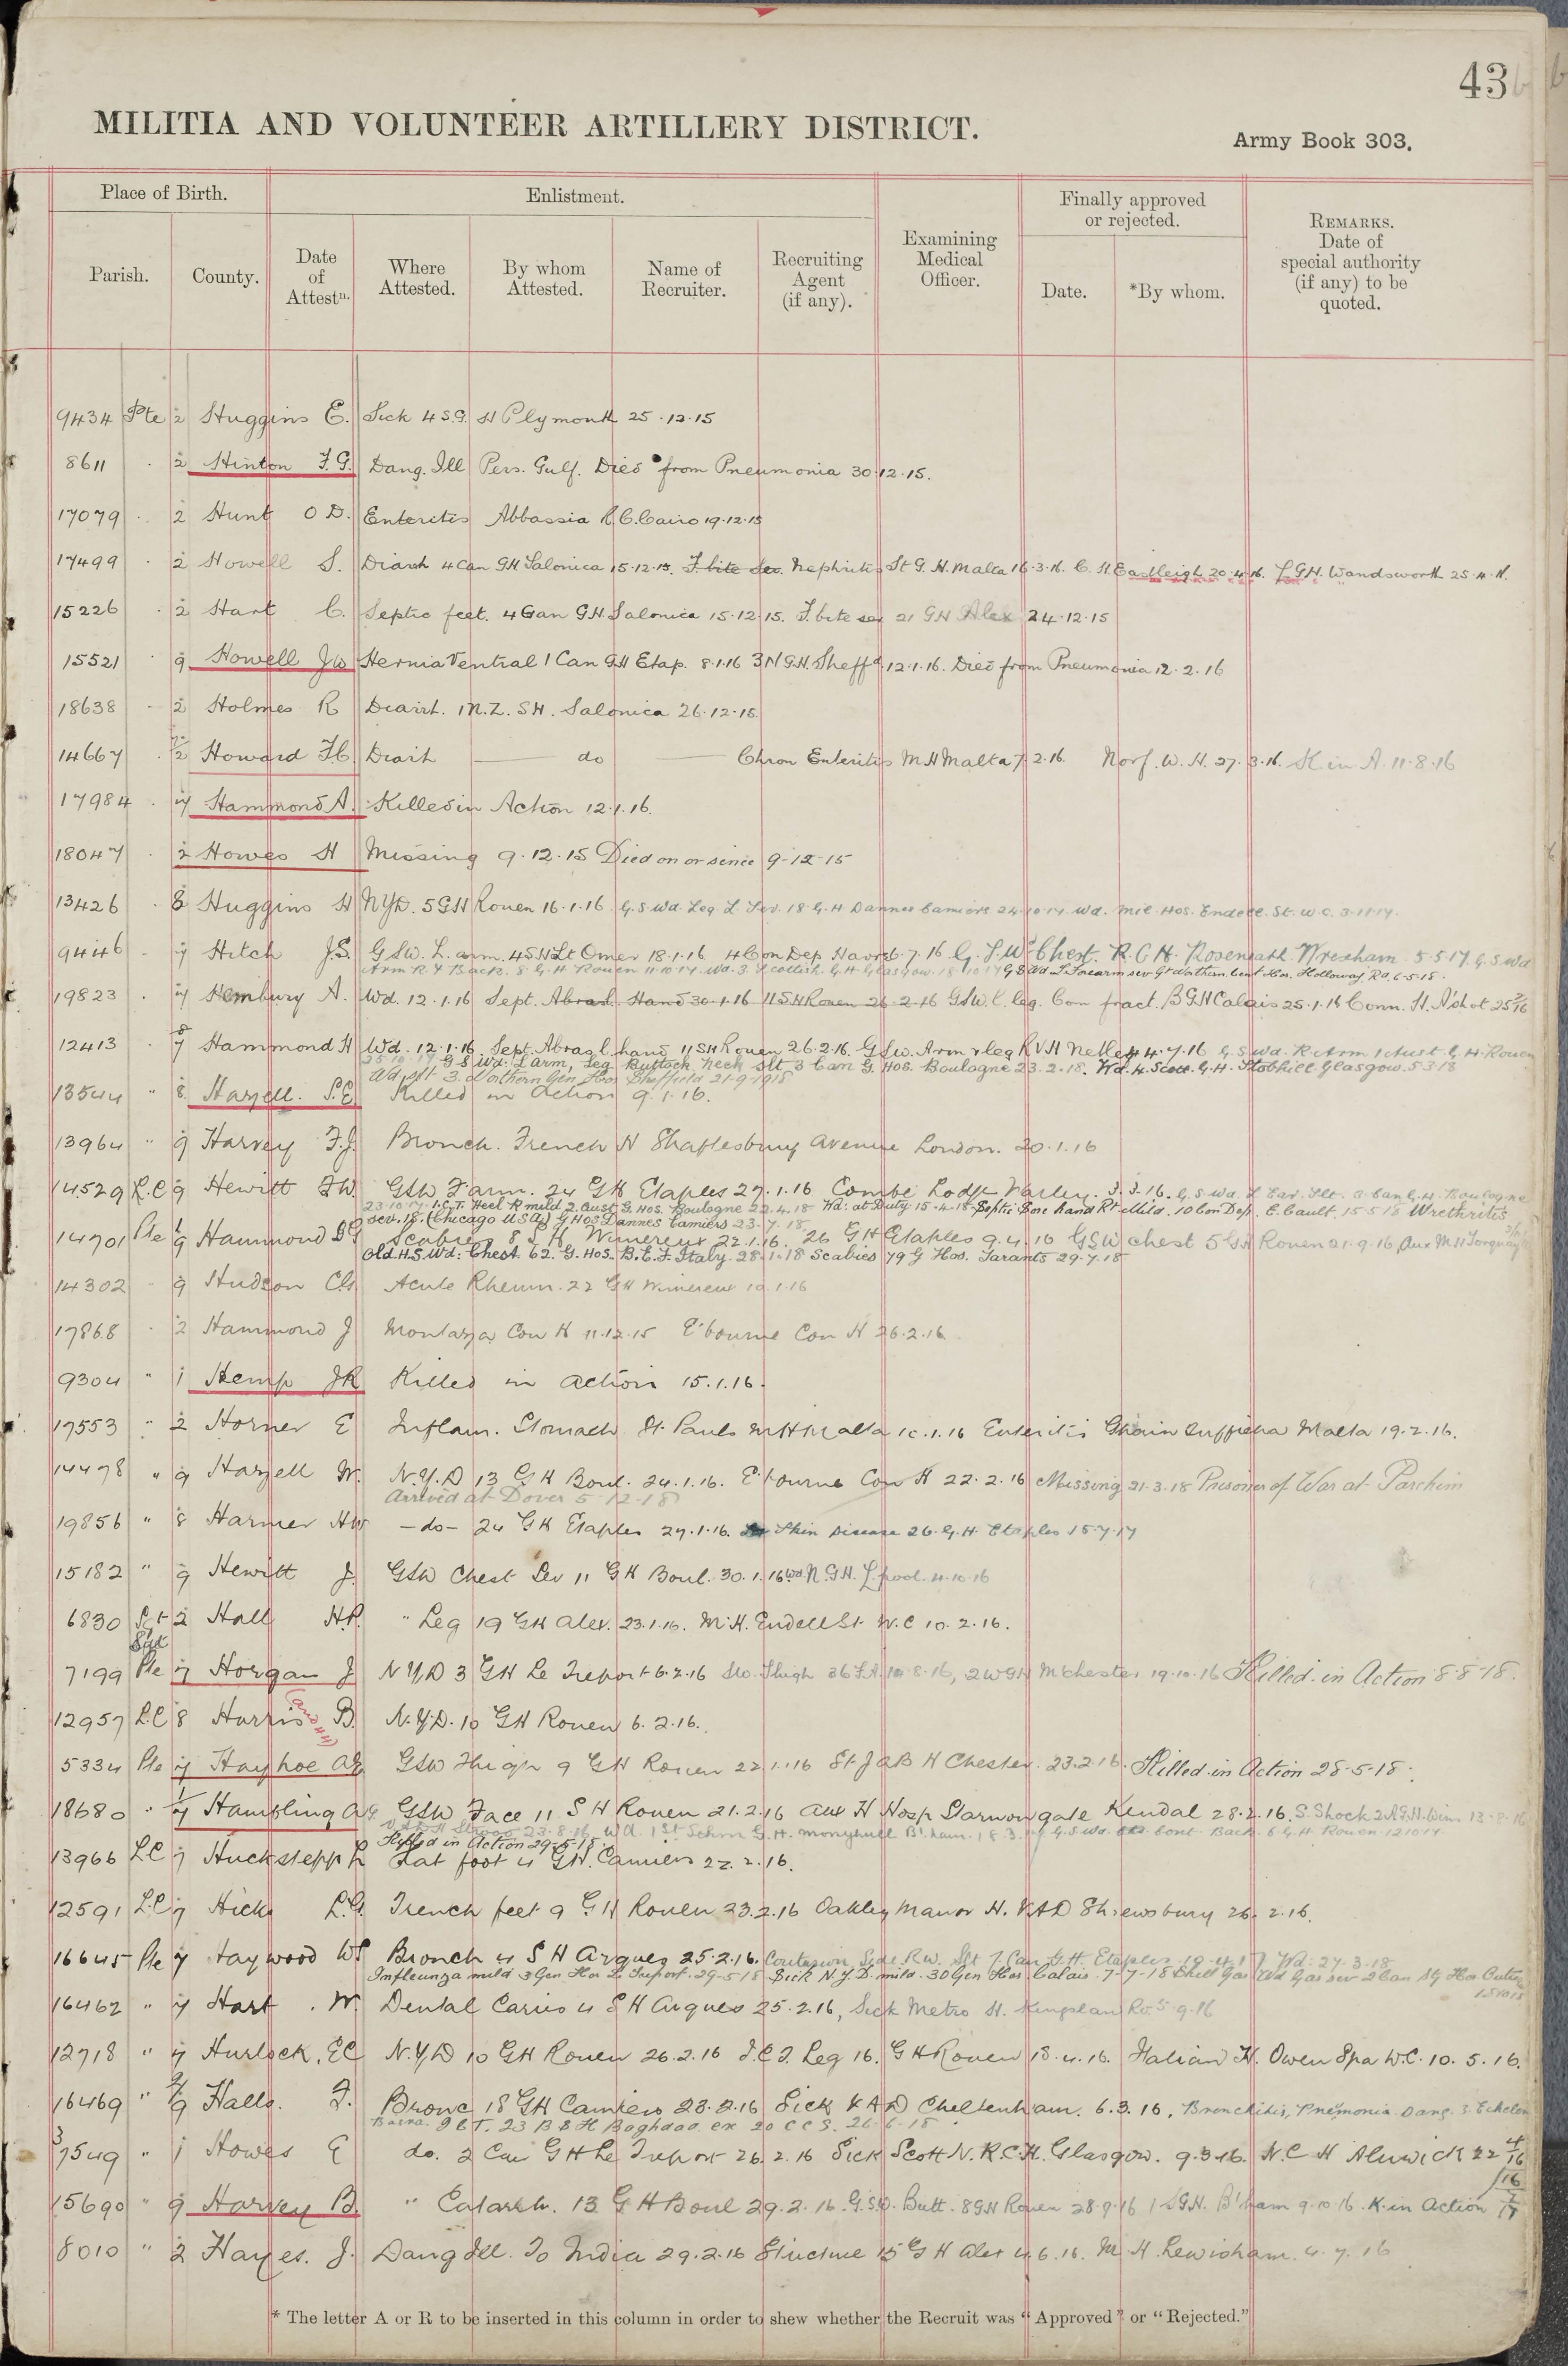 43
MILITIA AND VOLUNTEER ARTILLERY DISTRICT.
Army Book 303.
Place of Birth.
Enlistment.
Finally approved or rejected.
Parish.
County.
Date of Attestn.
Where Attested.
By whom Attested.
Name of Recruiter.
Recruiting Agent (if any).
Examining Medical Officer.
Date.
*By whom.
REMARKS. Date of special authority (if any) to be quoted.
9434 Pte 2 Huggins E. Sick 4 S.G. H Plymouth 25.12.15
8611 . 2 Hinton F.G. Dang. Ill Pers. Gulf. Died from Pneumonia 30.12.15.
17079 . 2 Hunt O D. Enteritis Abbassia R.C. Cairo 19.12.15
17499 . 2 Howell S. Diarrh 4 Can GH Salonica 15.12.15. F.bite Sev. Nephritis St G. H. Malta 16.3.16. C. H Eastleigh 20.4.16. GH. Wandsworth 25.4.16.
15226 . 2 Hart C. Septic feet. 4 Can G.H. Salonica 15.12.15. F. bite sev 21 GH Alex 24.12.15
15521 . 9 Howell JW Hernia Ventral 1 Can GH Etap. 8.1.16 3 N G.H. Sheffd. 12.1.16. Died from Pneumonia 12.2.16
18638 - 2 Holmes R Diarrh. 1 N.Z. S H. Salonica 26.12.15.
14667 . 7/2 Howard H.C. Diarh do Chron Enteritis M H Malta 7.2.16. Norf. W. H. 27.3.16. K. in A. 11.8.16
17984 . 7 Hammond A. Killed in Action 12.1.16.
18047 . 2 Howes H Missing 9.12.15 Died on or since 9-12-15
13426 . 8 Huggins H NYD. 5 GH Rouen 16.1.16. G.S. Wd. Leg. L. Sev. 18. G. H Dannes Camiers 24.10.17. Wd. Mil. Hos. Endell. St. W.C. 3.11.17.
9446 . 7 Hitch J.S. GSW. L. arm. 4 S.H. St Omer 18.1.16 4 Con Dep Havre 6.7.16 G.S.Wd Chest. R.C.H. Roseneath Wrexham 5.5.17. G.S. Wd
Arm R. & Back. 8. G. H Rouen 11.10.17. Wd. 3 Scottish G.H. Glasgow. 18.10.17 G S Wd L. Forearm sev Gt Northern Cent Hos. Holloway Rd. 6.5.18.
19823 . 7 Hembury A. Wd. 12.1.16 Sept. Abras l. Hand 30.1.16 11 S.H Rouen 26.2.16 GSW. l. leg. Com fract. 13 GH Calais 25.1.16 Conn. H. A'shot 25 2/16
12413 . 8/7 Hammond H Wd. 12.1.16 Sept. Abras l. hand 11 SH Rouen 26.2.16. GSW. Arm & leg R V H Netley 4.7.16 G.S. Wd. R. Arm 1 Aust. G. H. Rouen
25.10.17 G S Wd. L Arm, Leg Buttock, Neck slt 3 Can G. Hos. Boulogne 23.2.18. Wd. 4 Scott. G.H. Stobhill Glasgow. 5 3 18
Wd. slt 3. Northern Gen Hos Sheffield 21-9-1918
13544 " 8 Hazell. S.E. Killed in action 9.1.16.
13964 " 9 Harvey F.J. Bronch. French H Shaftesbury Avenue London. 20.1.16
14529 L.C 9 Hewitt F.W. GSW F'arm. 24 GH Etaples 27.1.16 Combe Lodge Warley. 3.3.16. G.S. Wd. L Ear. Slt. 3. Can. G. H. Boulogne
23.10.17. I.C.T. Heel R mild 2 Aust G. Hos. Boulogne 22.4.18 Wd. at Duty 15-4-18 Septic Sore hand Rt Mild. 10 Con Dep. E. Cault. 15.5.18 Urethritis
sev. 18. (Chicago USA) G Hos Dannes Camiers 23-7-18
14701 Pte 1/9 Hammond B G Scabies 8 S H. Wimereux 22.1.16. 26 GH Etaples 9.4.16 GSW chest 5 GH Rouen 21.9.16, Aux M H Torquay
Old. H.S. Wd: Chest. 62. G. Hos. B.E.F. Italy. 28.1.18 Scabies 79 G Hos. Taranto 29.7.18
14302 . 9 Hudson C.G. Acute Rheum. 22 GH Wimereux 10.1.16
17868 . 2 Hammond J Montaza Con H 11.12.15 E'bourne Con H 26.2.16.
9304 " 1 Hemp JR Killed in action 15.1.16.
17553 " 2 Horner E Inflam. Stomach St. Pauls M H Malta 10.1.16 Enteritis Ghain Tuffieha Malta 19.2.16.
14478 " 9 Hazell W. N.Y.D 13 GH Boul. 24.1.16. E'bourne Con H 22.2.16 Missing 21.3.18 Prisoner of War at Parchim
Arrived at Dover 5-12-18
19856 " 8 Harmer HW -do- 24 GH Etaples 27.1.16. Skin Disease 26. G. H. Etaples 15.7.17
15182 " 9 Hewitt J. GSW Chest Sev 11 GH Boul. 30.1.16 Wd N. G.H. L'pool. 4.10.16
6830 Sgt 2 Hall H.P. " Leg 19 GH Alex. 23.1.16. M.H. Endell St W.C 10.2.16.
7199 Pte 7 Horgan J NYD 3 GH Le Treport 6.2.16 SW. Thigh 36 F.A. 10.8.16, 2 W GH M'chester 19.10.16 Killed in Action 8-8-18.
12957 L.C 8 Harris B. N.Y.D. 10 GH Rouen 6.2.16.
5334 Pte 7 Hayhoe AG GSW Thigh 9 GH Rouen 22.1.16 St J & B H Chester. 23.2.16. Killed in Action 28-5-18.
18680 . 1/7 Hambling A.G. GSW Face 11 S H Rouen 21.2.16 Aux H Hosp Kendal 28.2.16. S. Shock 2 A.G.H. Wim 13.8.16
V.A.D. H Stroud 23.8.16 Wd. 1st Sthrn G.H. Monyhull B'ham. 18.3.17 G.S. Wd. Cont. Back. 6. G.H. Rouen 12.10.17
Killed in Action 29-5-18.
13966 LC 7 Huckstepp L Flat foot 4 GH. Camiers 22.2.16.
12591 L.C 7 Hicks L.G. Trench feet 9 GH Rouen 23.2.16 Oakley Manor H. VAD Shrewsbury 26.2.16.
16645 Pte 7 Haywood WS Bronch 4 S H Arques 25.2.16. Contusion Side R.W. Slt 7. Can G.H. Etaples Wd. 27.3.18
Influenza mild 3 Gen Hos Le Treport. 29-5-18 Sick N.Y.D. mild. 30 Gen Hos. Calais. 7-7-18 Shell Gas Wd Gas sev 2 Can Stg Hos
16462 " 7 Hart. W. Dental Caries 4 S H Arques 25.2.16, Sick Metro H. Kingsland Rd. 5.9.16
12718 " 7 Hurlock. EC N.Y.D 10 GH Rouen 26.2.16 I.C.T. Leg 16. GH Rouen 18.4.16. Italian H. Queen Sqa W.C. 10.5.16.
16469 " 2/9 Halls. F. Bronc 18 GH Camiers 23.2.16 Sick VAD Cheltenham. 6.3.16, Bronchitis, Pneumonia. Dang. 3. Echelon
Basra. 23 B S H Baghdad. ex 20 C C S. 26-6-18
3/7549 " 1 Howes E do. 2 Can GH Le Treport 26.2.16 Sick Scott N. R.C.H. Glasgow. 9.3.16. N.C H Alnwick 22 4/16
15690 " 9 Harvey B. " Catarrh. 13 GH Boul 29.2.16. G.S.W. Butt. 8 GH Rouen 28.9.16 1 S GH. B'ham 9.10.16. K. in Action
8010 " 2 Hayes. J. Dang Ill. To India 29.2.16 Stricture 15 GH Alex 4.6.16. M.H. Lewisham. 4.7.16
* The letter A or R to be inserted in this column in order to shew whether the Recruit was "Approved" or "Rejected."